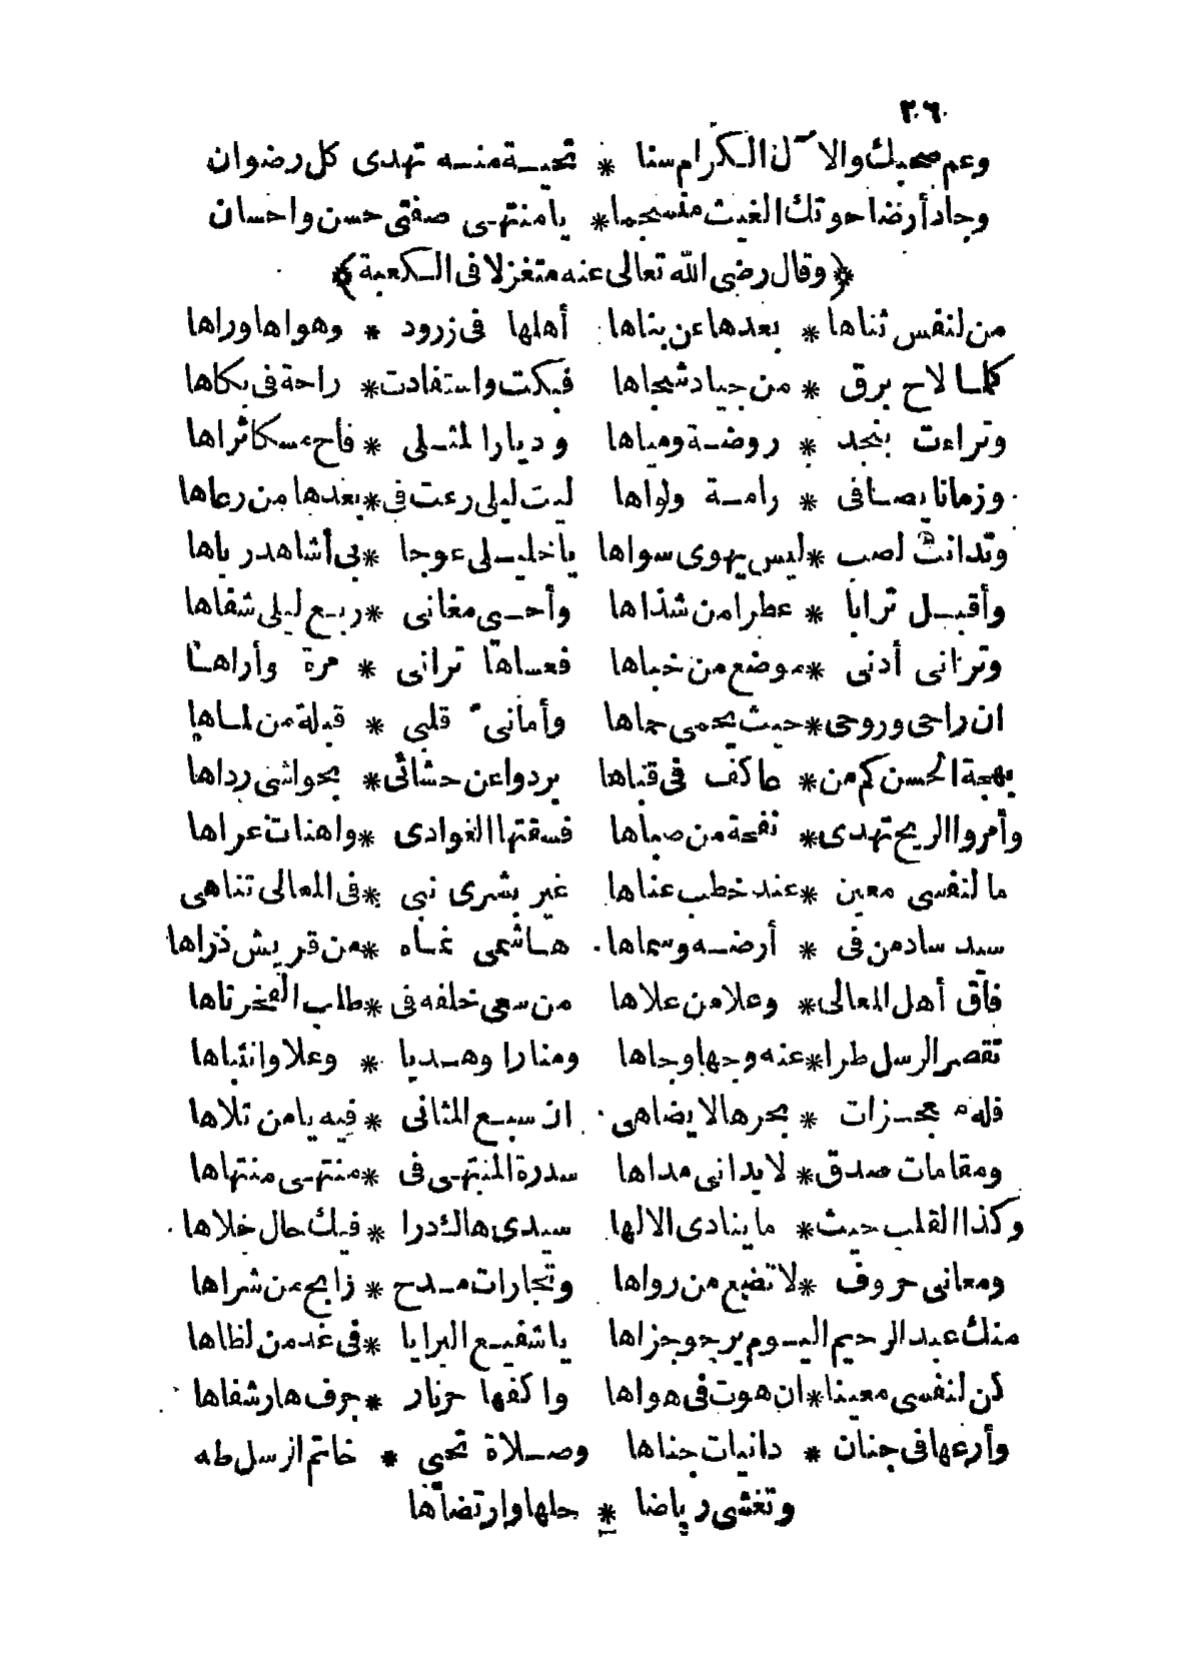 ٢٠٦
وعم صحبك والآل الكرام سنا * تحية منه تهدى كل رضوان
وجاد أرضا حوتك الغيث منسجما * يا منتهى صفتى حسن واحسان
﴿وقال رضى الله تعالى عنه متغزلا فى الكعبة﴾
من لنفس ثناها * بعدها عن بناها أهلها فى زرود * وهواها وراها
كلما لاح برق * من جياد شجاها فبكت واستفادت * راحة فى بكاها
وتراءت بنجد * روضة ومياها وديارا لمثلى * فاح مسكا ثراها
وزمانا يصافى * رامة ولواها ليت ليلى رعت فى * بعدها من رعاها
وتدانت لصب * ليس يهوى سواها يا خليلى عوجا * بى أشاهد رباها
وأقبل ترابا * عطرا من شذاها وأحيى مغانى * ربع ليلى شفاها
وترانى أدنى * موضع من خباها فعساها ترانى * مرة وأراها
ان راحى وروحى * حيث يحمى حماها وأمانى قلبى * قبلة من لماها
بهجة الحسن كم من * عاكف فى قباها بردوا عن حشائى * بحواشى رداها
وأمروا الريح تهدى * نفحة من صباها فسقتها الغوادى * واهنات عراها
ما لنفسى معين * عند خطب عناها غير بشرى نبى * فى المعالى تناهى
سيد ساد من فى * أرضه وسماها هاشمى نماه * من قريش ذراها
فاق أهل المعالى * وعلا من علاها من سعى خلفه فى * طلب الفخر تاها
تقصر الرسل طرا * عنه وجها وجاها ومنارا وهديا * وعلا وانتباها
فله معجزات * بحرها لا يضاهى ان سبع المثانى * فيه يا من تلاها
ومقامات صدق * لا يدانى مداها سدرة المنتهى فى * منتهى منتهاها
وكذا القلب حيث * ما ينادى الالها سيدى هاك درا * فيك حال حلاها
ومعانى حروف * لا تضيع من رواها وتجارات مدح * رابح من شراها
منك عبد الرحيم اليوم يرجو جزاها يا شفيع البرايا * فى غد من لظاها
كن لنفسى معينا * ان هوت فى هواها واكفها حر نار * جرف هار شفاها
وأرعها فى جنان * دانيات جناها وصلاة تحيى * خاتم الرسل طه
وتغشى رياضا * حلها وارتضاها